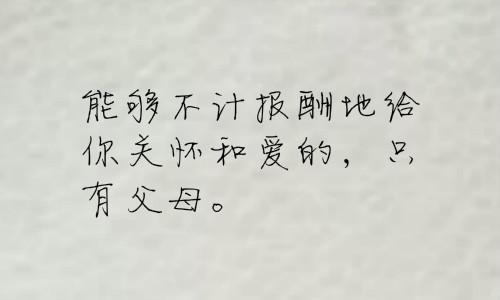 能够不计报酬地给
你关怀和爱的，只
有父母。